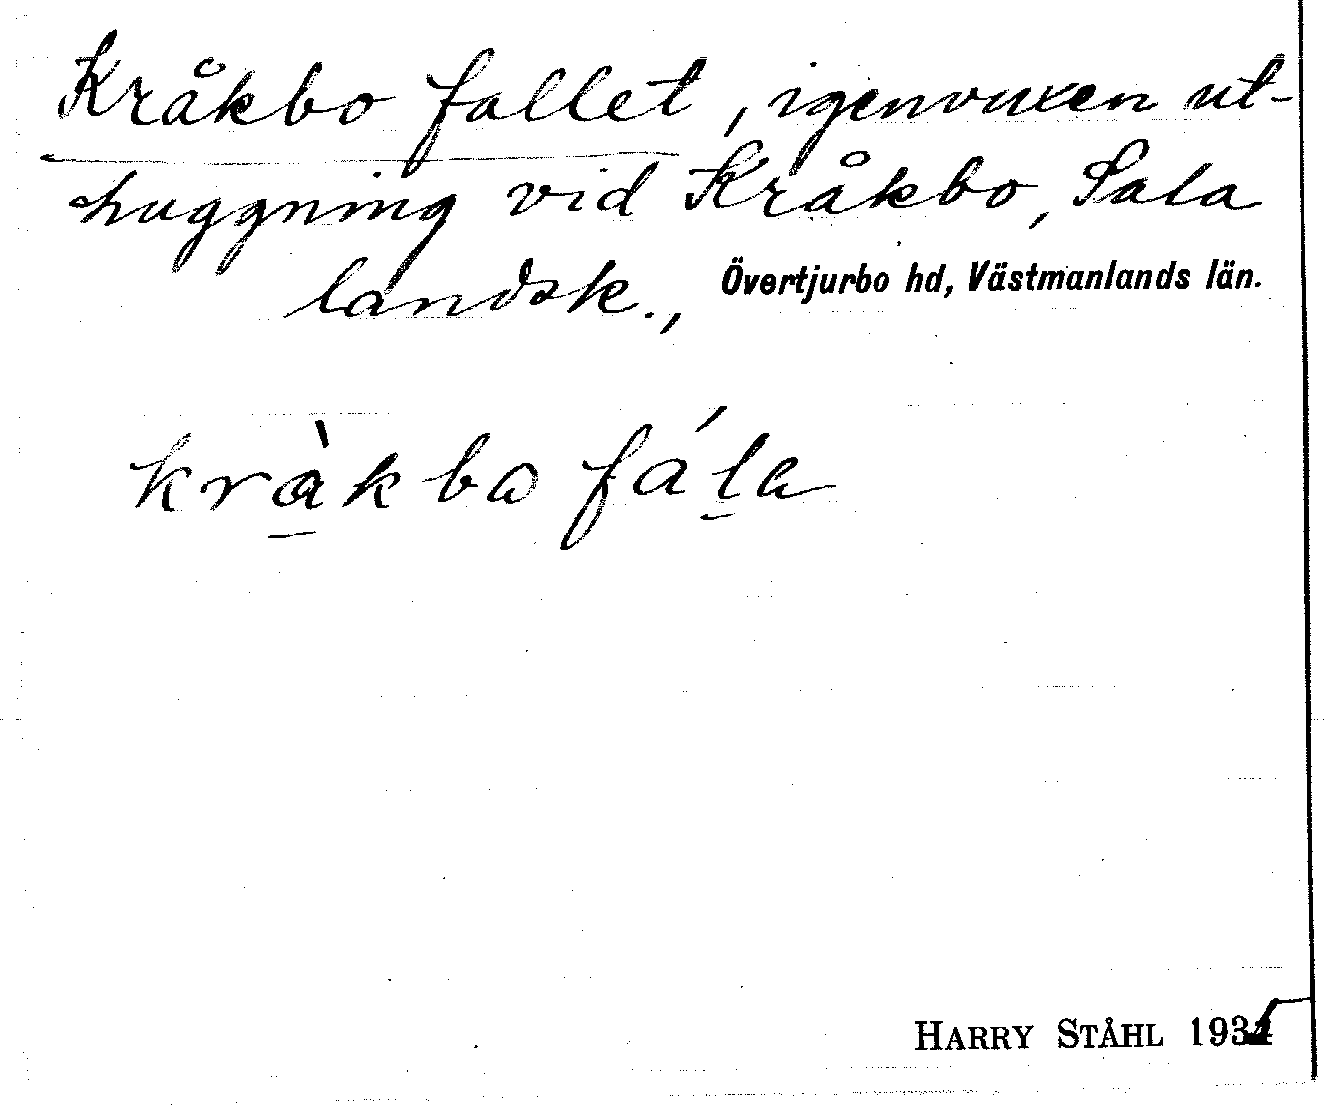 Kråkbo fallet, igenvuxen ut-
huggning vid Kråkbo, Sala
landsk., Övertjurbo hd, Västmanlands län.
kràkba fála
HARRY STÅHL